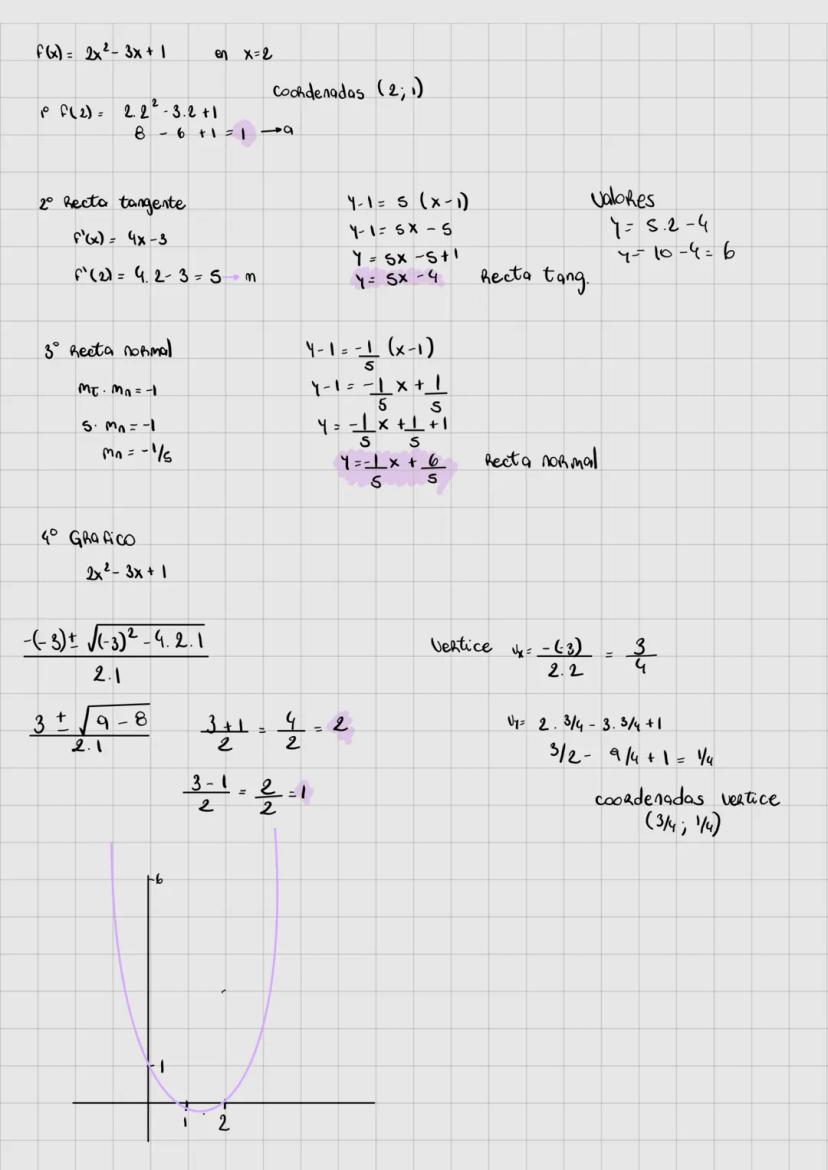 f(x) = 2x² - 3x + 1 en x=2
coordenadas (2; 1)
1º f(2) = 2.2² - 3.2 + 1
8 - 6 + 1 = 1 → a
2º Recta tangente
f'(x) = 4x - 3
f'(2) = 4.2 - 3 = 5 → m
y - 1 = 5 (x - 1)
y - 1 = 5x - 5
y = 5x - 5 + 1
y = 5x - 4 Recta tang.
Valores
y = 5.2 - 4
y = 10 - 4 = 6
3º Recta normal
mt . mn = -1
5 . mn = -1
mn = -1/5
y - 1 = -1/5 (x - 1)
y - 1 = -1/5 x + 1/5
y = -1/5 x + 1/5 + 1
y = -1/5 x + 6/5 Recta normal
4º Grafico
2x² - 3x + 1
-(-3) ± √(-3)² - 4.2.1 / 2.1
3 ± √9 - 8 / 2.1
3 + 1 / 2 = 4/2 = 2
3 - 1 / 2 = 2/2 = 1
Vertice Vx = -(-3) / 2.2 = 3/4
Vy = 2 . 3/4 - 3 . 3/4 + 1
3/2 - 9/4 + 1 = 1/4
coordenadas vertice
(3/4 ; 1/4)
6
1
1 2